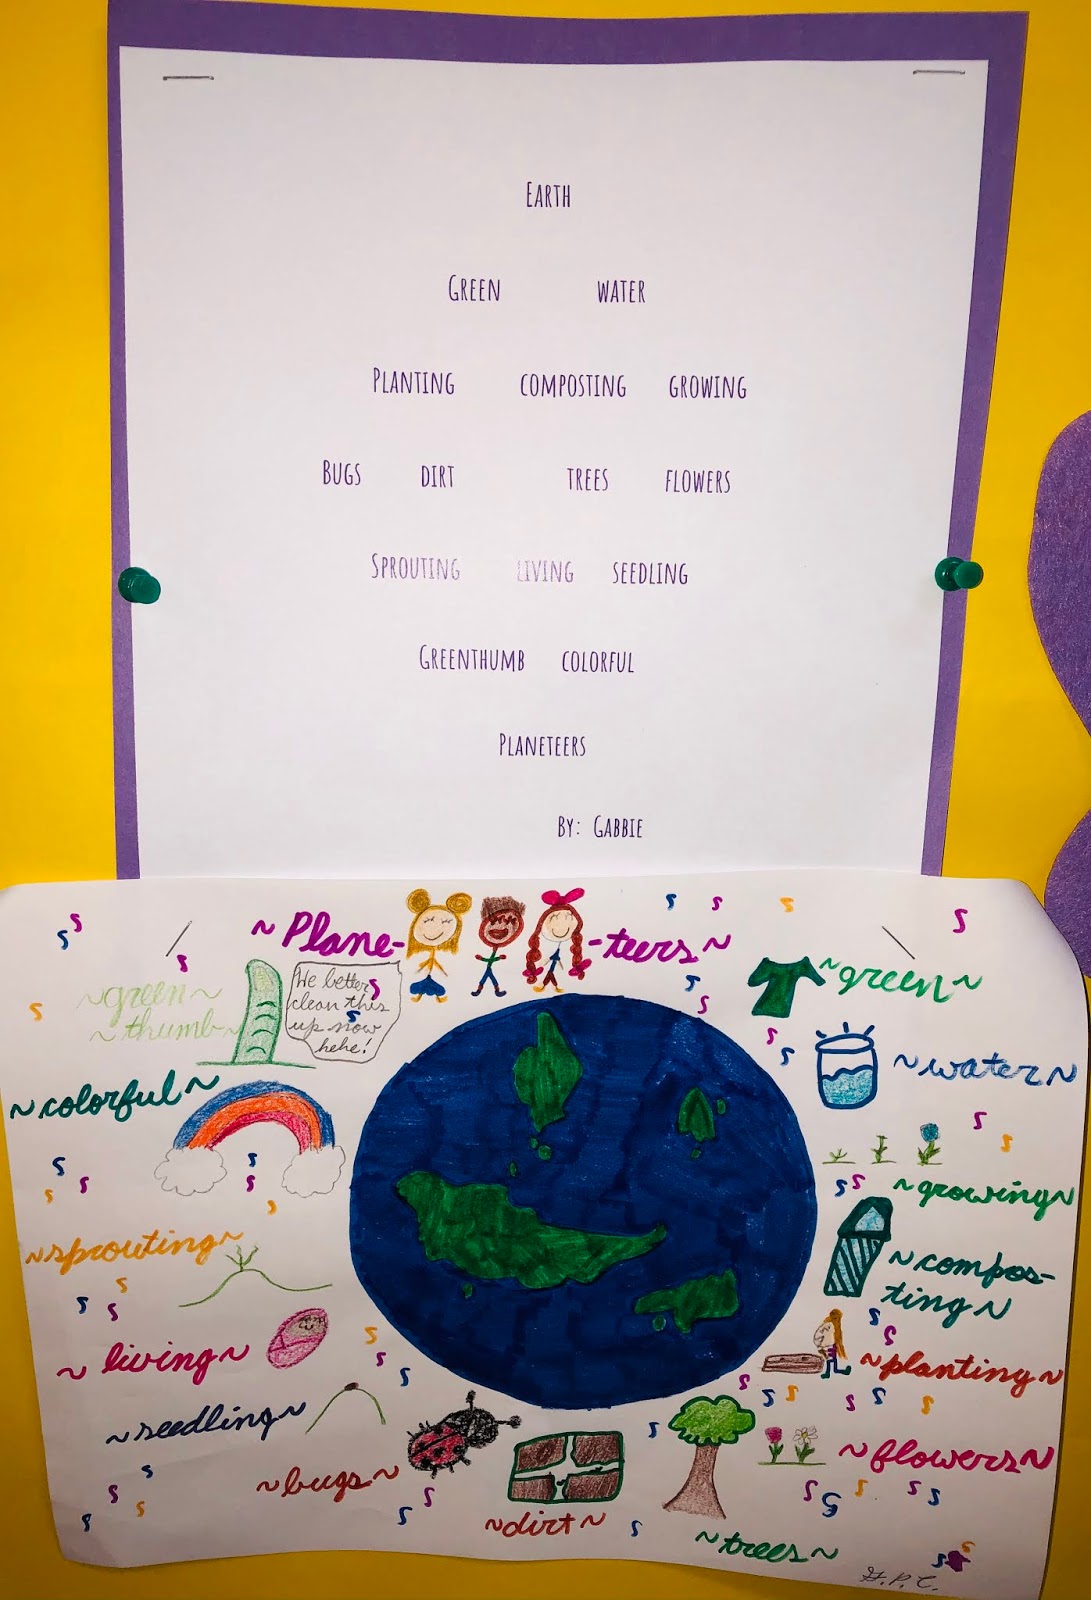 Earth
Green water
Planting composting growing
Bugs dirt trees flowers
Sprouting living seedling
Greenthumb colorful
Planeteers
By: Gabbie
~Plane- -teers~
~green~
~thumb~
We better
clean this
up now
hehe!
~green~
~water~
~colorful~
~growing~
~sprouting~
~compos-
ting~
~living~
~planting~
~seedling~
~flowers~
~bugs~
~dirt~
~trees~
G.P.C.